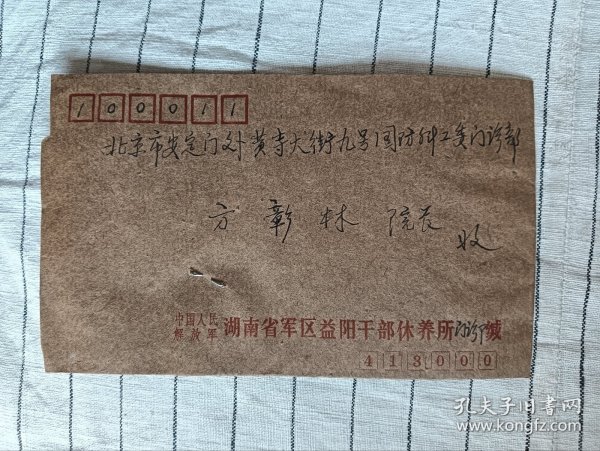 100011
北京市安定门外黄寺大街九号国防科工委门诊部
方彰林 院长
收
中国人民解放军 湖南省军区益阳干部休养所门诊 缄
413000
孔夫子旧书网
www.kongfz.com